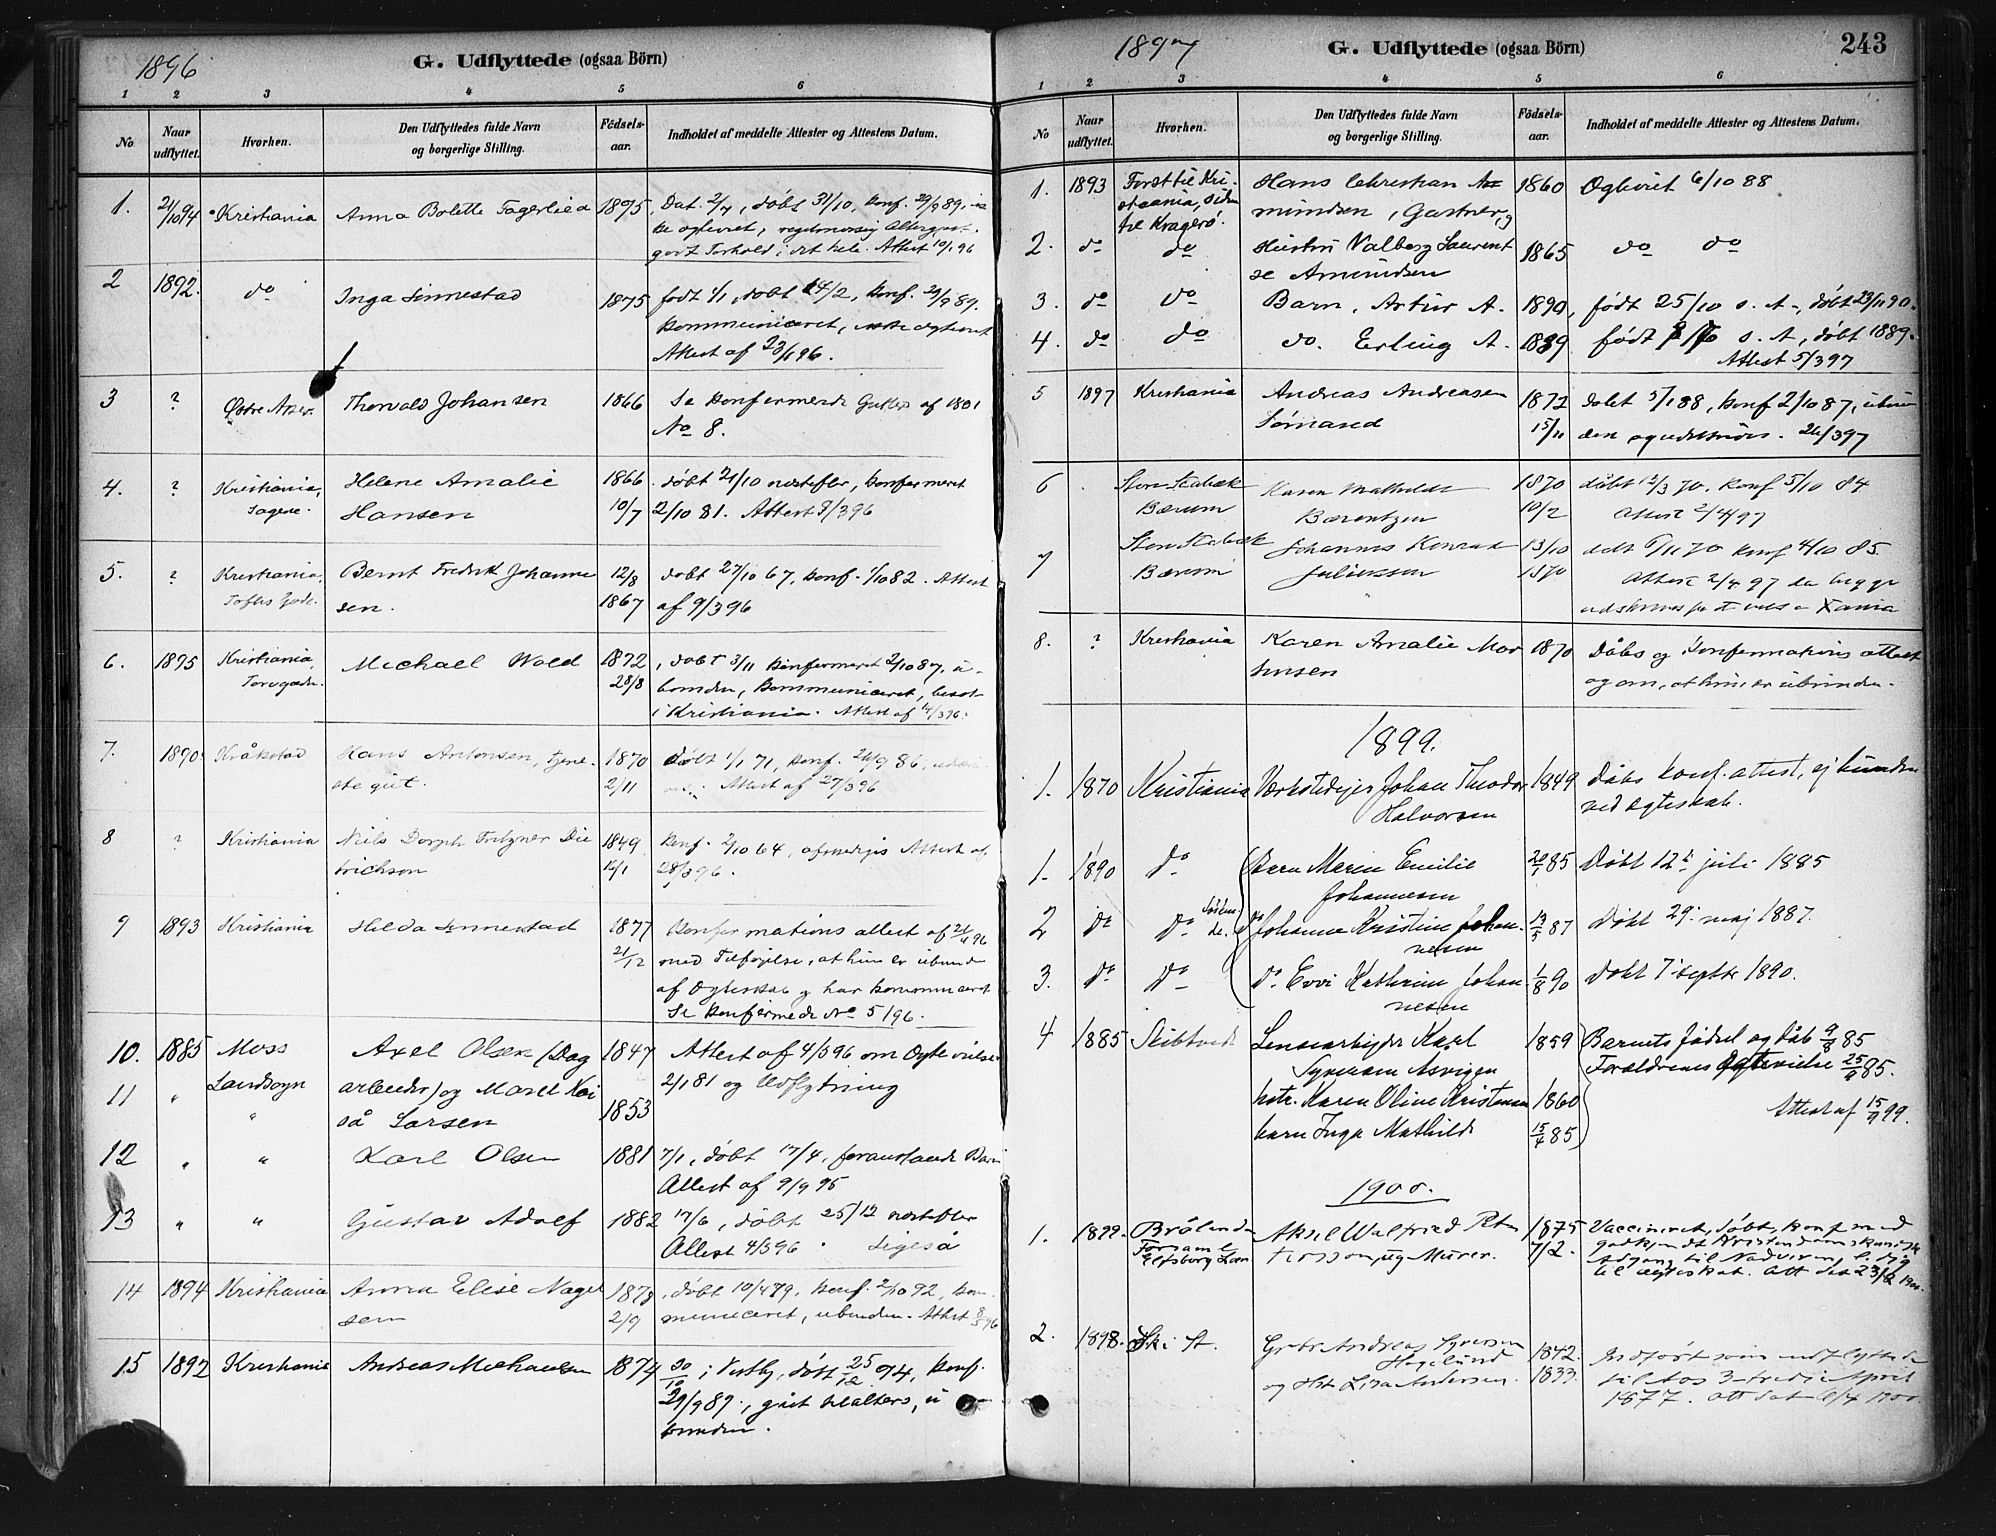 1896
G. Udflyttede (ogsaa Börn)
1 2 3 4 5 6
No.
Naar udflyttet.
Hvorhen.
Den Udflyttedes fulde Navn
og borgerlige Stilling.
Födsels-
aar.
Indholdet af meddelte Attester og Attestens Datum.
1. 21/10 94 Kristiania Anna Bolette Fagerlied 1875 Dat. 2/7, døbt 31/10, konf. 29/9 89, ik
ke ægteviet,
Forhold i det hele. Attest 10/1 96
2 1892. do Inga Sinnestad 1875 født 1/1, døbt 14/2, konf. 29/9 89.
kommuniceret, ikke ægteviet
Attest af 23/1 96.
3 ? Østre Aker. Thorvald Johansen 1866 Se Konfirmerede af 1881
No 8.
4. ? Kristiania, Helene Amalie 1866 døbt 21/10 næstefter, konfirmeret
Sagene. Hansen 10/7 2/10 81. Attest 9/3 96
5. ? Kristiania, Bernt Fredrik Johanne 12/8 døbt 27/10 67, konf. 1/10 82. Attest
Toftes Gade. sen. 1867 af 9/3 96
6. 1895 Kristiania, Michael Wold 1872, døbt 3/11 konfirmeret 2/10 87, u-
Torvgaden. 28/8 bunden, kommuniceret, bosat
i Kristiania. Attest af 14/3 96.
7. 1890. Kråkstad Hans Antonsen, tjene- 1870 Døbt 1/1 71, konf. 26/9 86,
ste gut. 2/11 Attest af 27/3 96
8 ? Kristiania Niels Dorph Fritzner Die 1849 Konf. 2/10 64, Attest af
trichson 16/1 28/3 96.
9 1893 Kristiania Hilda Sinnestad 1877 Konfirmations attest af 21/4 96
21/12 med Tilføjelse, at hun er ubunden
af Ægteskab og har kommuniceret
Se Konfirmede No 5/96.
10. 1885 Moss Axel Olsen (Dag 1847 Attest af 4/3 96 om Ægtevielse
11 " Landsogn arbeider) og Maret Kai 2/1 81 og Udflytning
" så Larsen 1853
12 " " Karl Olsen 1881 7/1, døbt 17/4, foranstaaende Barn
Attest af 9/9 95
13 " " Gustav Adolf 1882 17/6, døbt 25/12 næstefter
Attest 4/3 96 . Ligeså
14 1894 Kristiania Anna Elise Nagel 1878, døbt 10/4 79, konf. 2/10 92, kom
sen 2/9 municeret, ubunden. Attest 8/5 96
15 1892 Kristiania Andreas Michaelsen 1874 30/10 i Vestby, døbt 25/12 74, konf.
29/9 89., u
bunden.
1897
G. Udflyttede (ogsaa Börn)
243
1 2 3 4 5 6
No
Naar
udflyttet.
Hvorhen.
Den Udflyttedes fulde Navn
og borgerlige Stilling.
Födsels-
aar.
Indholdet af meddelte Attester og Attestens Datum.
1. 1893 Først til Kri- Hans Christian A 1860 Ægteviet 6/10 88
stiania, siden mundsen, Gartner, og
til Kragerø.
2. do do Hustru Valborg Laurent 1865 do do
se Amundsen
3. do do Barn, Artur A. 1890, født 25/10 s. A., døbt 23/11 90.
4. do do do. Erling A. 1889 født s. A., døbt 1889.
Attest 5/3 97
5 1897 Kristiania Andreas Andreasen 1872 døbt 5/1 88, konf 2/10 87, ubun
Sørnased 15/11 den og udskrives. 26/3 97
6 . Store Stabæk Karen Mathilde 1870 døbt 12/3 70. konf 5/10 84
Bærum Bærentzen 10/2 Attest 2/4 97
7 Store Stabæk Johannes Konrad 13/10 døbt 6/11 70 konf 4/10 85
Bærum Juliussen 1870 Attest 2/4 97 da begge
Xania
8. ? Kristiania Karen Amalie Mor 1870 Dåbs og Konfirmations attest
tensen og om, at hun er ubunden.
1899.
1. 1870 Kristiania Værkstedejer Johan Theodor 1849 Dåbs konf. attest, ej bunden
Halvorsen ved ægteskab.
1. 1890 do Barn Maren Emilie 85 Døbt 12te juli 1885
Johannesen
2 do do do Johanne Kristine Johan- 13/5 87 Døbt 29. maj 1887.
nesen
3. do do do. Evvi Kathrine Johan 1/8 90 Døbt 7. septbr 1890.
nesen
4 1885 Skibtvedt Karl 1859 Barnets fødsel og dåb 9/8 85
Syversen Asvigen Forældrenes Ægtevielse 25/9 85.
hstr. Karen Oline Kristensen 1860 Attest af 15/9 99.
barn Inga Mathilde 15/4 85
1900.
1. 1899. Brålanda Aksel Walfried Pet 1875 Vaccineret, døbt, konf med
Forsaml. tersson, og Murer. 7/2. godkjendt Kristendomskundsk
Elfsborg Læn Adgang til Nadveren, ledig
til ægteskab. Att dat 23/2 1900.
2. 1898. Ski St. Andreas Syversen 1842. Indført som udflyttede
Hagelund
og Hst Lisa Andersen. 1833. til Aas 3 April
1877. Att dat 1900.